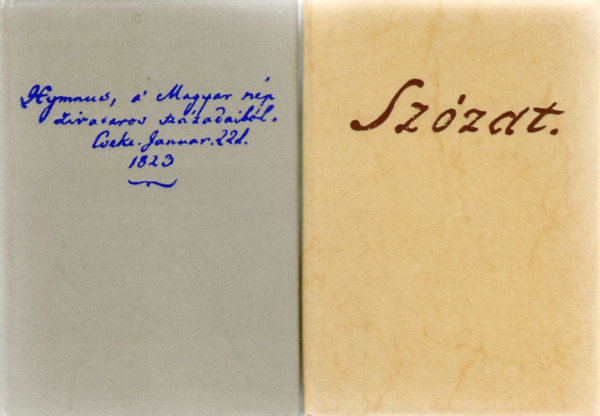 Hymnus, a' Magyar nép
zivataros századaiból.
Cseke. Januar. 22d.
1823
Szózat.